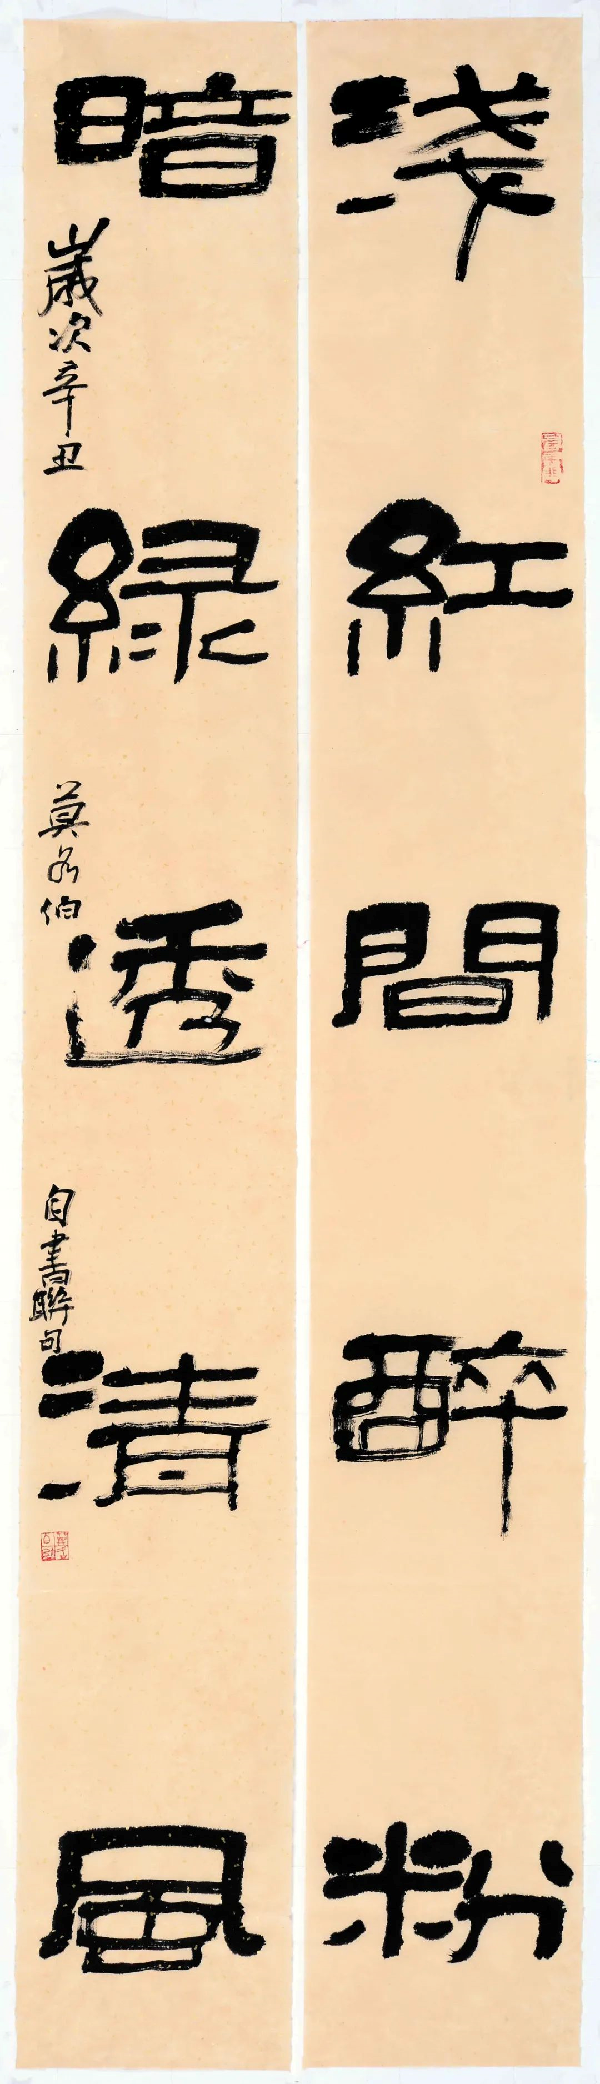 浅紅間醉粉
暗緑透清風
歲次辛丑
莫各伯
自書聯句